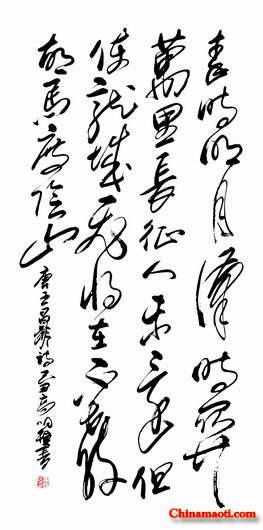 秦時明月漢時關
萬里長征人未還但
使龍城飛將在不教
胡馬度陰山
唐王昌齡詩
Chinamaoti.com